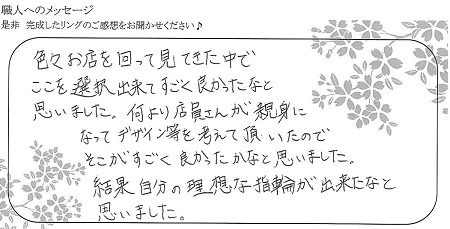 職人へのメッセージ
是非 完成したリングのご感想をお聞かせください♪
色々お店を回って見てきた中で
ここを選択出来てすごく良かったなと
思いました。何より店員さんが親身に
なってデザイン等を考えて頂いたので
そこがすごく良かったかなと思いました。
結果自分の理想な指輪が出来たなと
思いました。